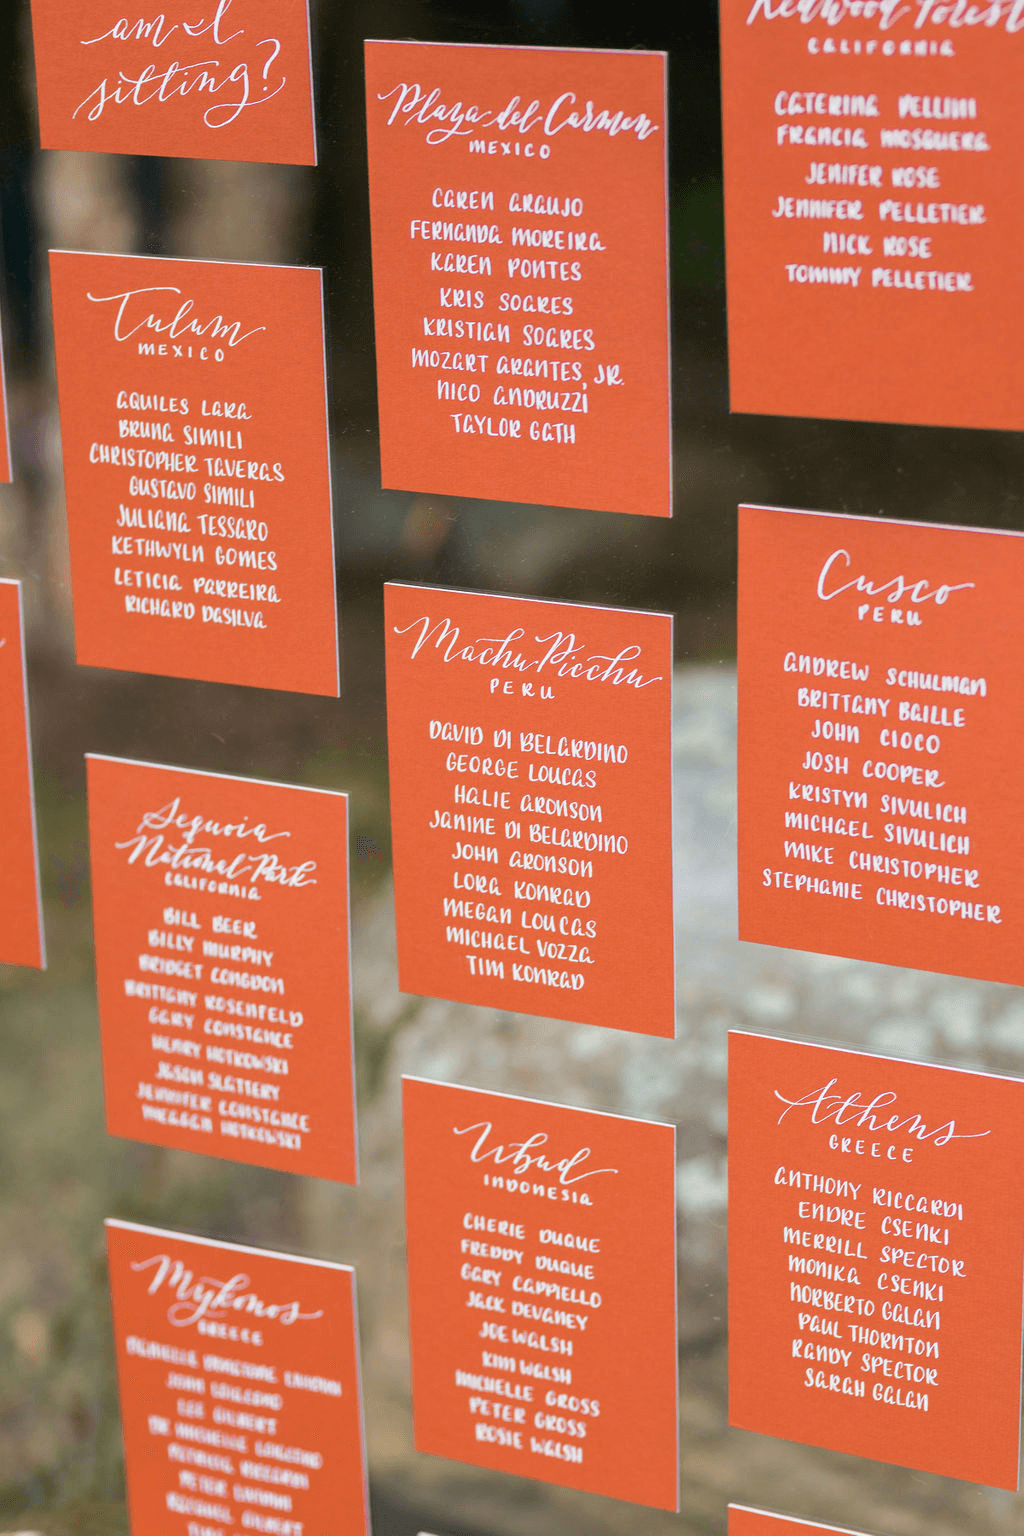 am I
sitting?
Tulum
MEXICO
AQUILES LARA
BRUNA SIMILI
CHRISTOPHER TAVERAS
GUSTAVO SIMILI
JULIANA TESSARO
KETHWYLN GOMES
LETICIA PARREIRA
RICHARD DASILVA
Sequoia
National Park
CALIFORNIA
BILL BEER
BILLY MURPHY
BRIDGET CONGDON
BRITTANY ROSENFELD
GARY CONSTANCE
HENRY HOTKOWSKI
JASON SLATTERY
JENNIFER CONSTANCE
MEAGAN HOTKOWSKI
Mykonos
GREECE
LEE GILBERT
PETER
RACHAEL GILBERT
Plaza del Carmen
MEXICO
CAREN ARAUJO
FERNANDA MOREIRA
KAREN PONTES
KRIS SOARES
KRISTIAN SOARES
MOZART ARANTES, JR.
NICO ANDRUZZI
TAYLOR GATH
Machu Picchu
PERU
DAVID DI BELARDINO
GEORGE LOUCAS
HALIE ARONSON
JANINE DI BELARDINO
JOHN ARONSON
LORA KONRAD
MEGAN LOUCAS
MICHAEL VOZZA
TIM KONRAD
Ubud
INDONESIA
CHERIE DUQUE
FREDDY DUQUE
GARY CAPPIELLO
JACK DEVANEY
JOE WALSH
KIM WALSH
MICHELLE GROSS
PETER GROSS
ROSIE WALSH
Redwood Forest
CALIFORNIA
CATERINA PELLINI
FRANCIA MOSQUERA
JENIFER ROSE
JENNIFER PELLETIER
NICK ROSE
TOMMY PELLETIER
Cusco
PERU
ANDREW SCHULMAN
BRITTANY BAILLE
JOHN CIOCO
JOSH COOPER
KRISTYN SIVULICH
MICHAEL SIVULICH
MIKE CHRISTOPHER
STEPHANIE CHRISTOPHER
Athens
GREECE
ANTHONY RICCARDI
ENDRE CSENKI
MERRILL SPECTOR
MONIKA CSENKI
NORBERTO GALAN
PAUL THORNTON
RANDY SPECTOR
SARAH GALAN